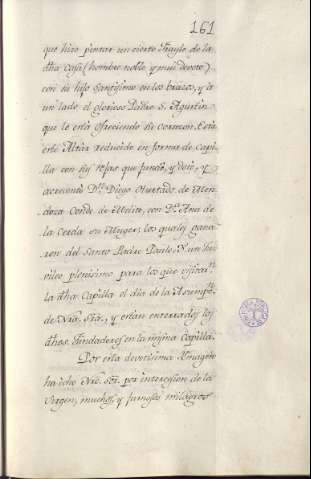 161
que hizo pintar un cierto Frayle de la
dha casa (hombre noble, y mui devoto)
con su hijo Santissimo en los brazos, y a
un lado el glorioso Padre S. Agustin
que le está ofreciendo su corazon. Está
este Altar reducido en forma de Capi-
lla con sus rejas que fundó, y dotó, y
acrecentó Dn. Diego Hurtado de Men-
doza Conde de Melito, con Da. Ana de
la Cerda su Muger; los quales gana-
ron del Santo Padre Paulo, V. un Jubi-
leo plenissimo para los que visitan
la dha Capilla el dia de la Asumpn.
de Nra. Sra., y están enterrados los
dhos. Fundadores en la misma Capilla.
Por esta devotissima Ymagen
ha echo Nro. Sor. por intercession de la
Virgen, muchos, y famosos milagros